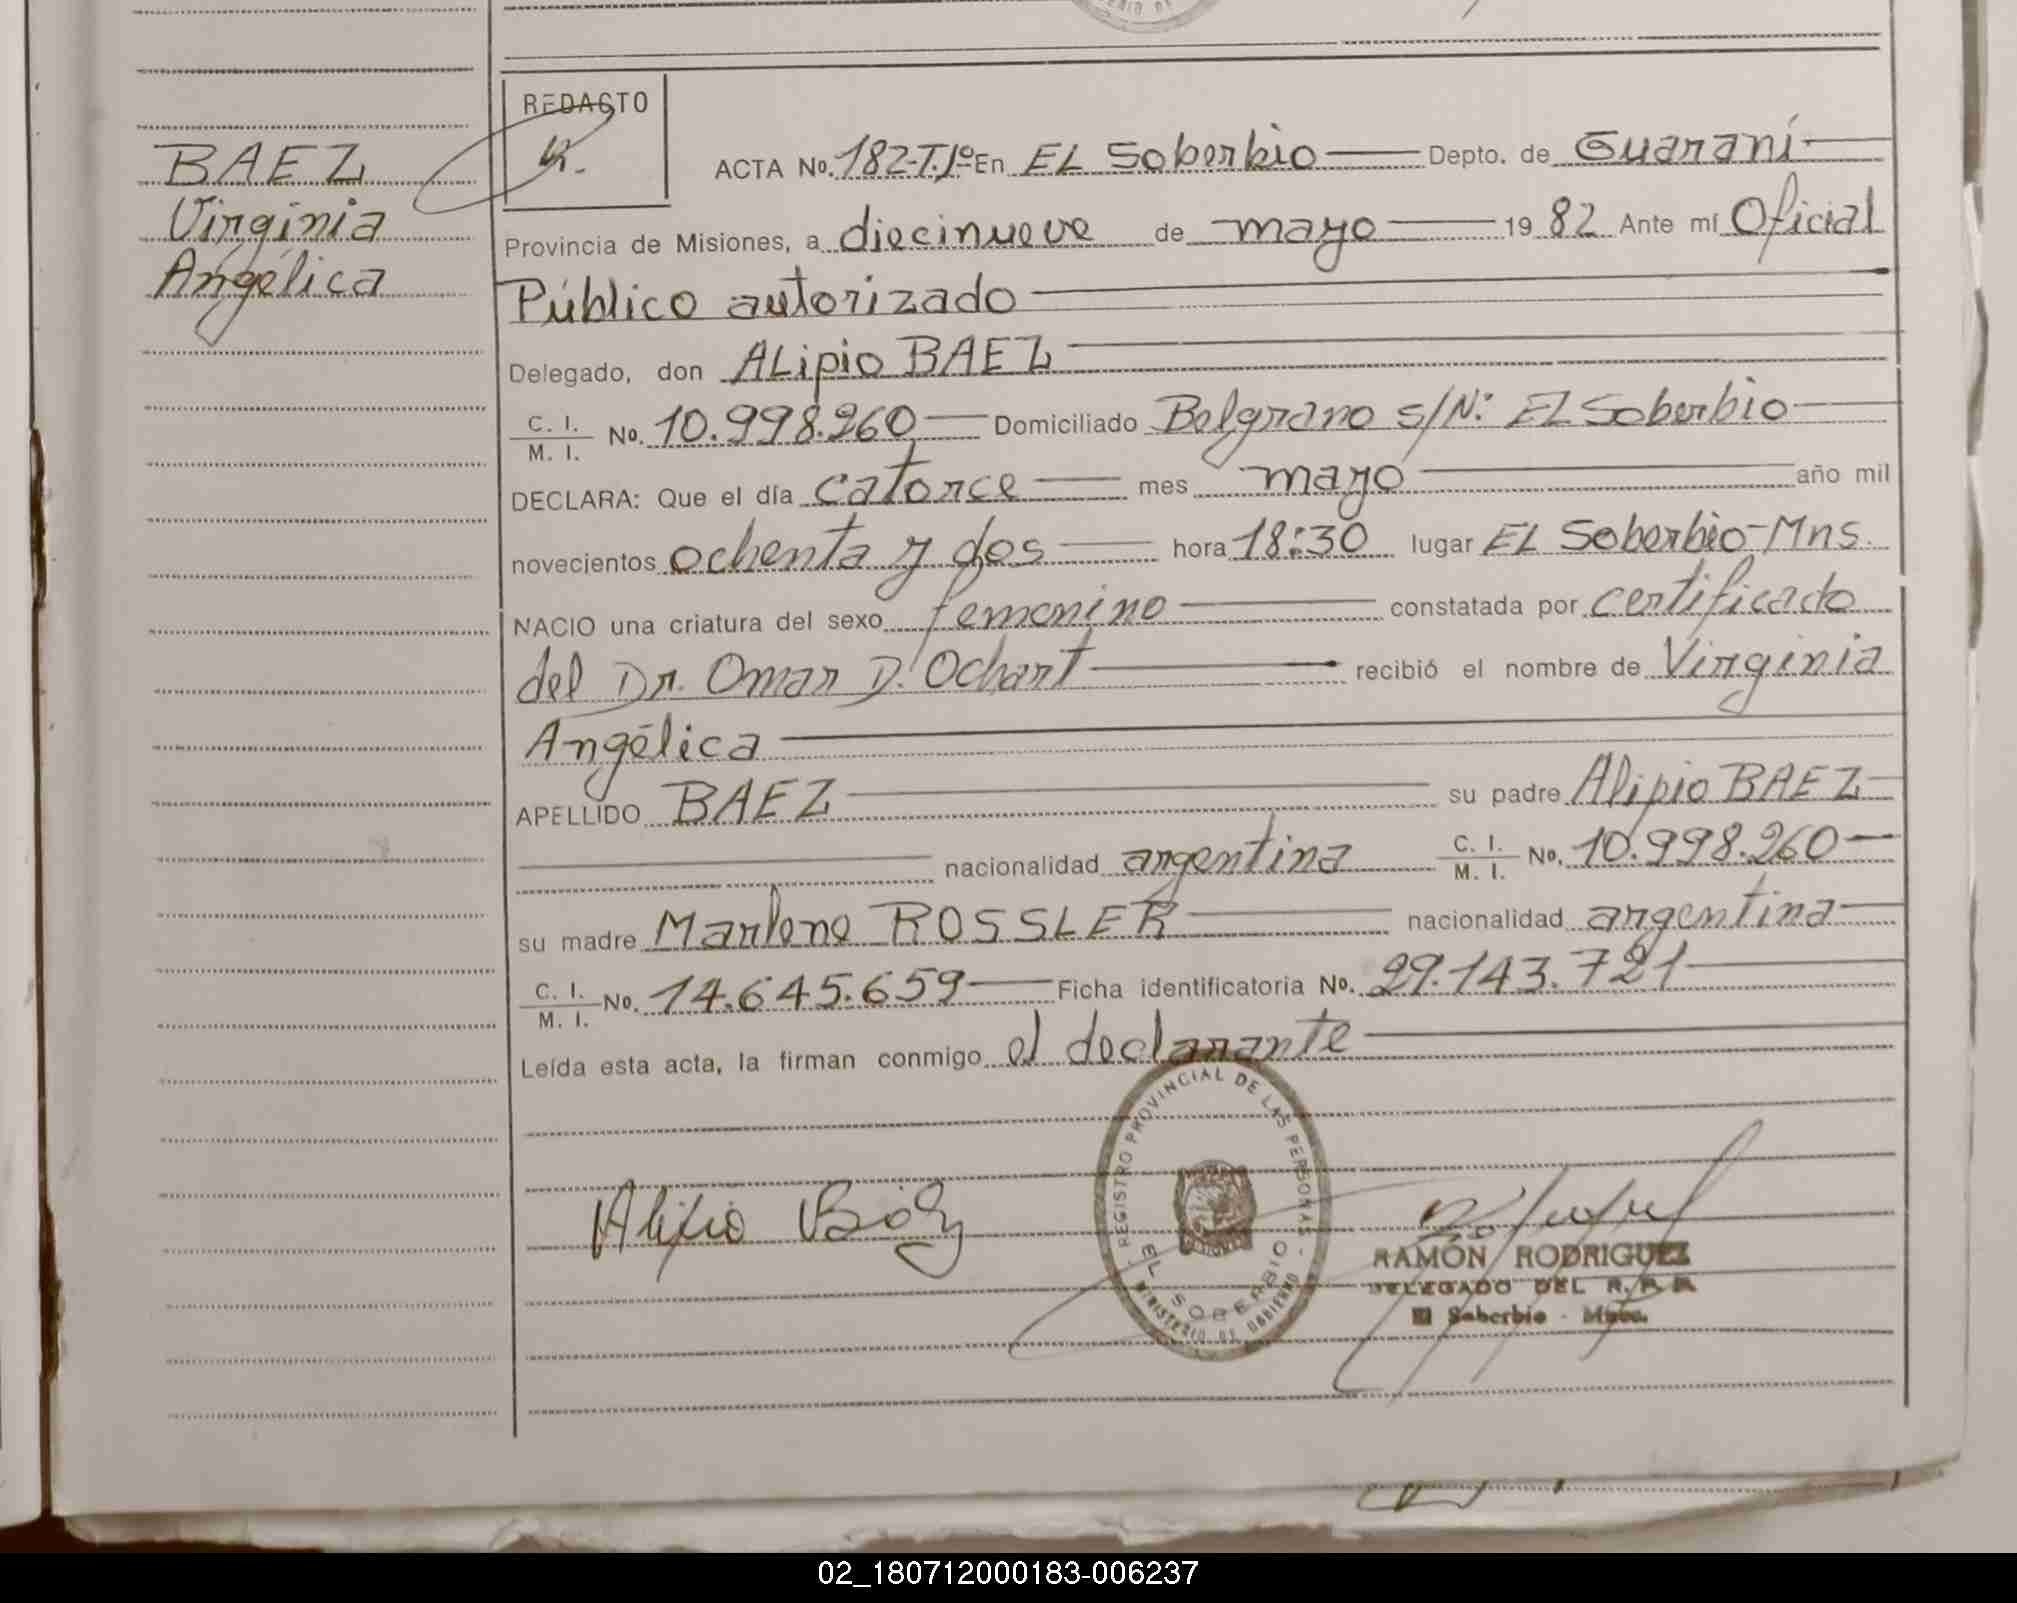 REDACTO
BAEZ
Virginia
Angélica
ACTA No. 182-T.1º En EL Soberbio Depto. de Guaraní
Provincia de Misiones, a diecinueve de mayo 19 82 Ante mí Oficial
Público autorizado
Delegado, don ALipio BAEZ
C. I.
M. I. No. 10.998.260 Domiciliado Belgrano s/Nº EL Soberbio
DECLARA: Que el día catorce mes mayo año mil
novecientos ochenta y dos hora 18:30 lugar EL Soberbio-Mns.
NACIO una criatura del sexo femenino constatada por certificado
del Dr. Omar D. Ochart recibió el nombre de Virginia
Angélica
APELLIDO BAEZ su padre Alipio BAEZ
nacionalidad argentina C. I.
M. I. No. 10.998.260
su madre Marlene ROSSLER nacionalidad argentina
C. I.
M. I. No. 14.645.659 Ficha identificatoria No. 29.143.721
Leída esta acta, la firman conmigo el declarante
REGISTRO PROVINCIAL DE LAS PERSONAS
EL SOBERBIO
MINISTERIO DE GOBIERNO
Alipio Báez
RAMÓN RODRIGUEZ
DELEGADO DEL R.P.P.
El Soberbio - Mnes.
02_180712000183-006237